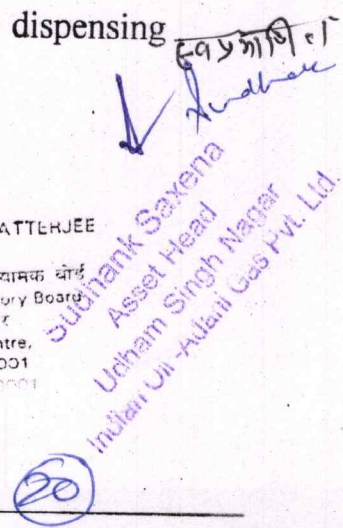 dispensing स्वप्रमाणित
ATTERJEE
यामक बोर्ड
ory Board
ntre,
001
0001
Sudhank Saxena
Asset Head
Udham Singh Nagar
Indian Oil -Adani Gas Pvt. Ltd.
20